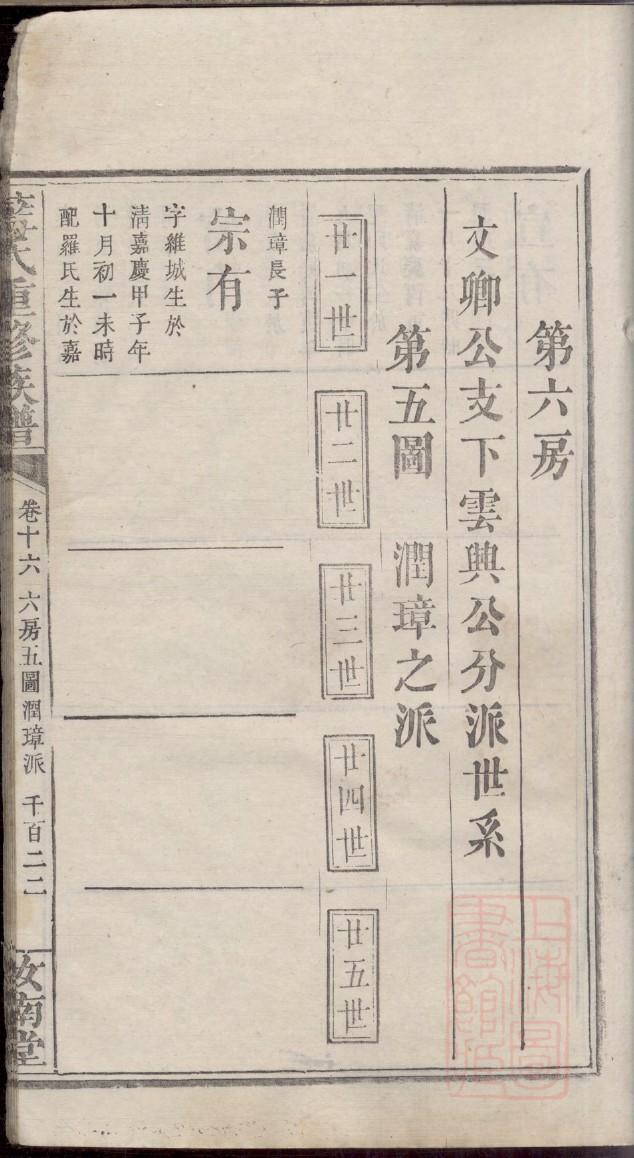 第六房
文卿公支下雲興公分派世系
第五圖 潤璋之派
廿一世
廿二世
廿三世
廿四世
廿五世
潤璋長子
宗有
字維城生於
清嘉慶甲子年
十月初一未時
配羅氏生於嘉
氏重修族譜
卷十六 六房五圖潤璋派 千百二二
汝南堂
上海圖書館藏